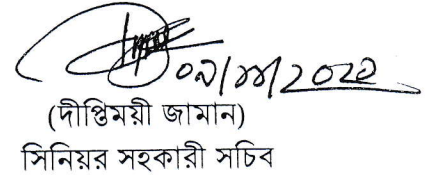 ০৯/১১/২০২২
(দীপ্তিময়ী জামান)
সিনিয়র সহকারী সচিব